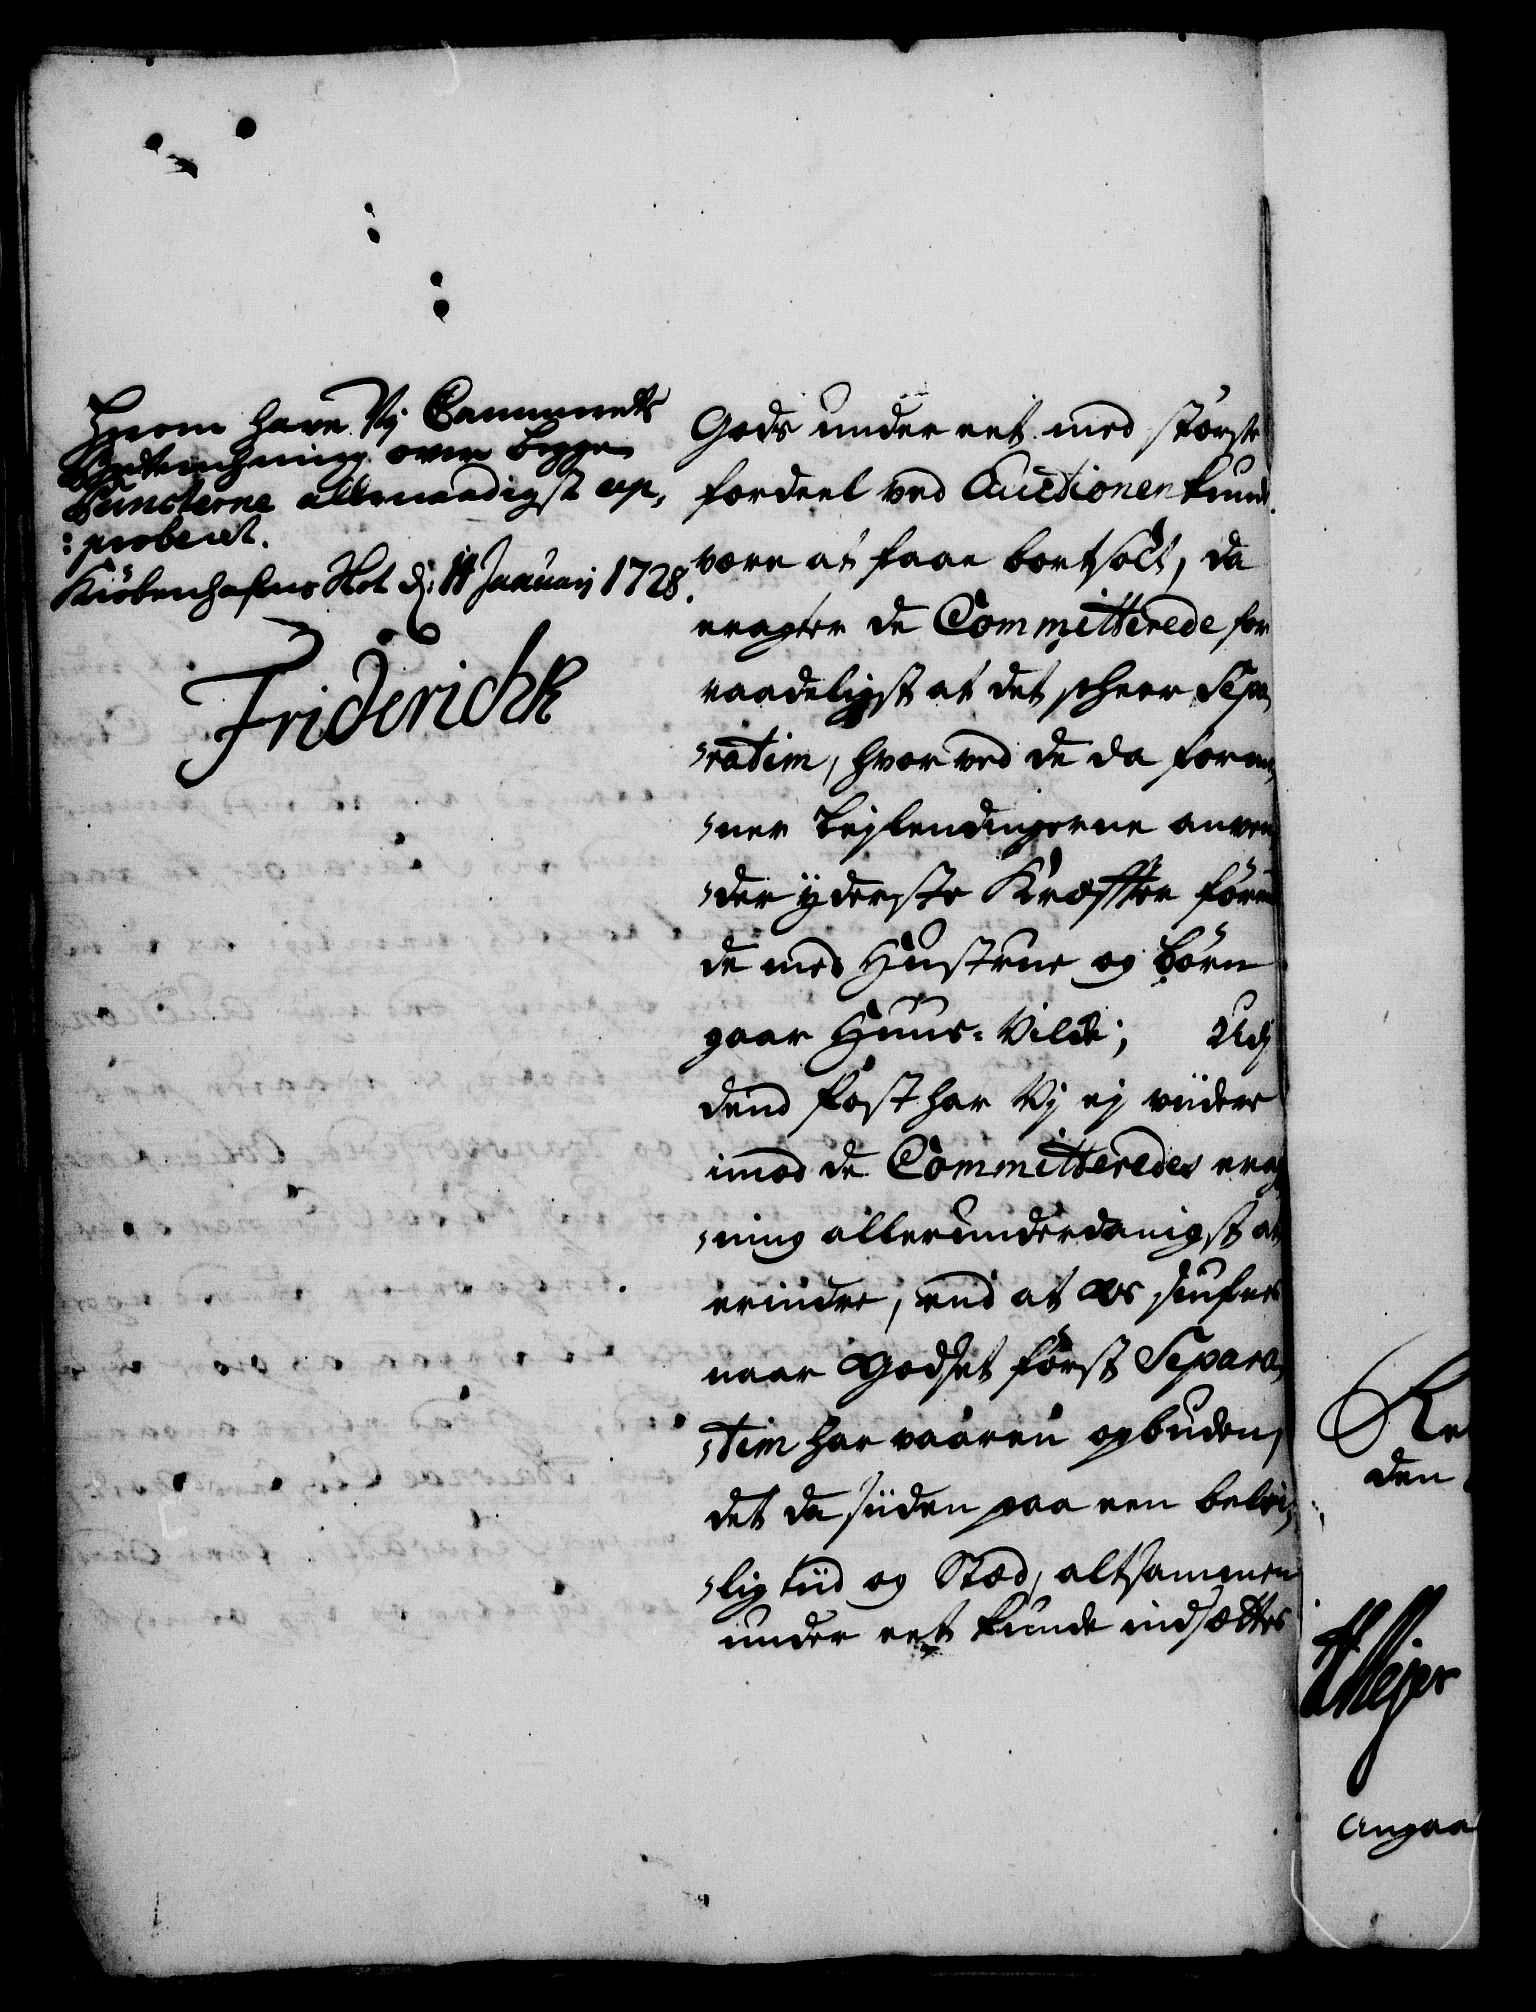 Hvorom have Vj Cammerets
Betænchning over begge
Puncterne allernaadigst ap,
:proberet.
Kiöbenhafns Slot d: 11 Januarij 1728.
Friderich R
Gods under eet med störste
fordeel ved Auctionen kunde
være at faae bortsolt, da
eragter de Committerede for
raadeligst at det scheer Sepa,
,ratim, hvor ved de da formee,
,ner Leylendingerne anven,
,der yderste Kræffter förend
de med Hustrue og börn
gaar Huus-Vilde; Udj
dend Post har Vj ej viidere
imod de Committeredes erag,
,ning allerunderdanigst at
erindre, end at os siufnes
naar Godset först Separa,
,tim har vaaren opbuden,
det da siiden paa een beleij,
,lig tiid og Stæd, altsammen
under eet kunde indsættes
Re
den
Meyer
Angaa